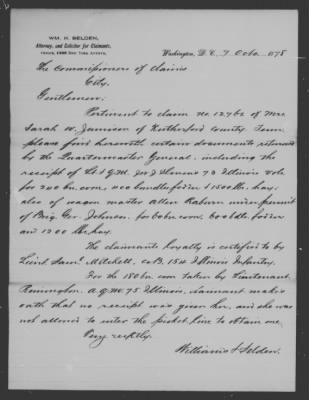 WM. H. SELDEN,
Attorney, and Solicitor for Claimants,
Washington, D.C., 7 Octo. 1878
The Commissioners of Claims
City.
Gentlemen:
Pertinent to claim no. 12762 of Mrs
Sarah W. Jamison of Rutherford County Tenn
please find herewith certain documents returned
by the Quartermaster General: including the
receipt of Lt & Q.M. 72 Illinois Vols
for 240 bu. corn, 400 bundles fodder & 1500 lbs. hay.
also of wagon master Allen Raburn under permit
of Brig. Gen. Johnson, for 60 bu. corn, 600 bdls fodder
and 1200 lbs. hay.
The claimants loyalty is certified to by
Lieut. Saml. Mitchell, Co B. 15th Illinois Infantry.
For the 180 bu. corn taken by Lieutenant
Remington. A.Q.M. 75 Illinois, claimant makes
oath that no receipt was given her, and she was
not allowed to enter the picket line to obtain one.
Very respectfly.
William H Selden.